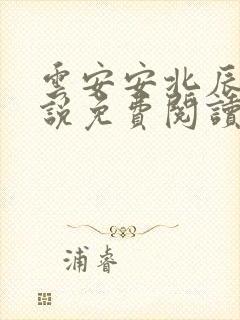 雲安安北辰
說免費閱讀
浦睿